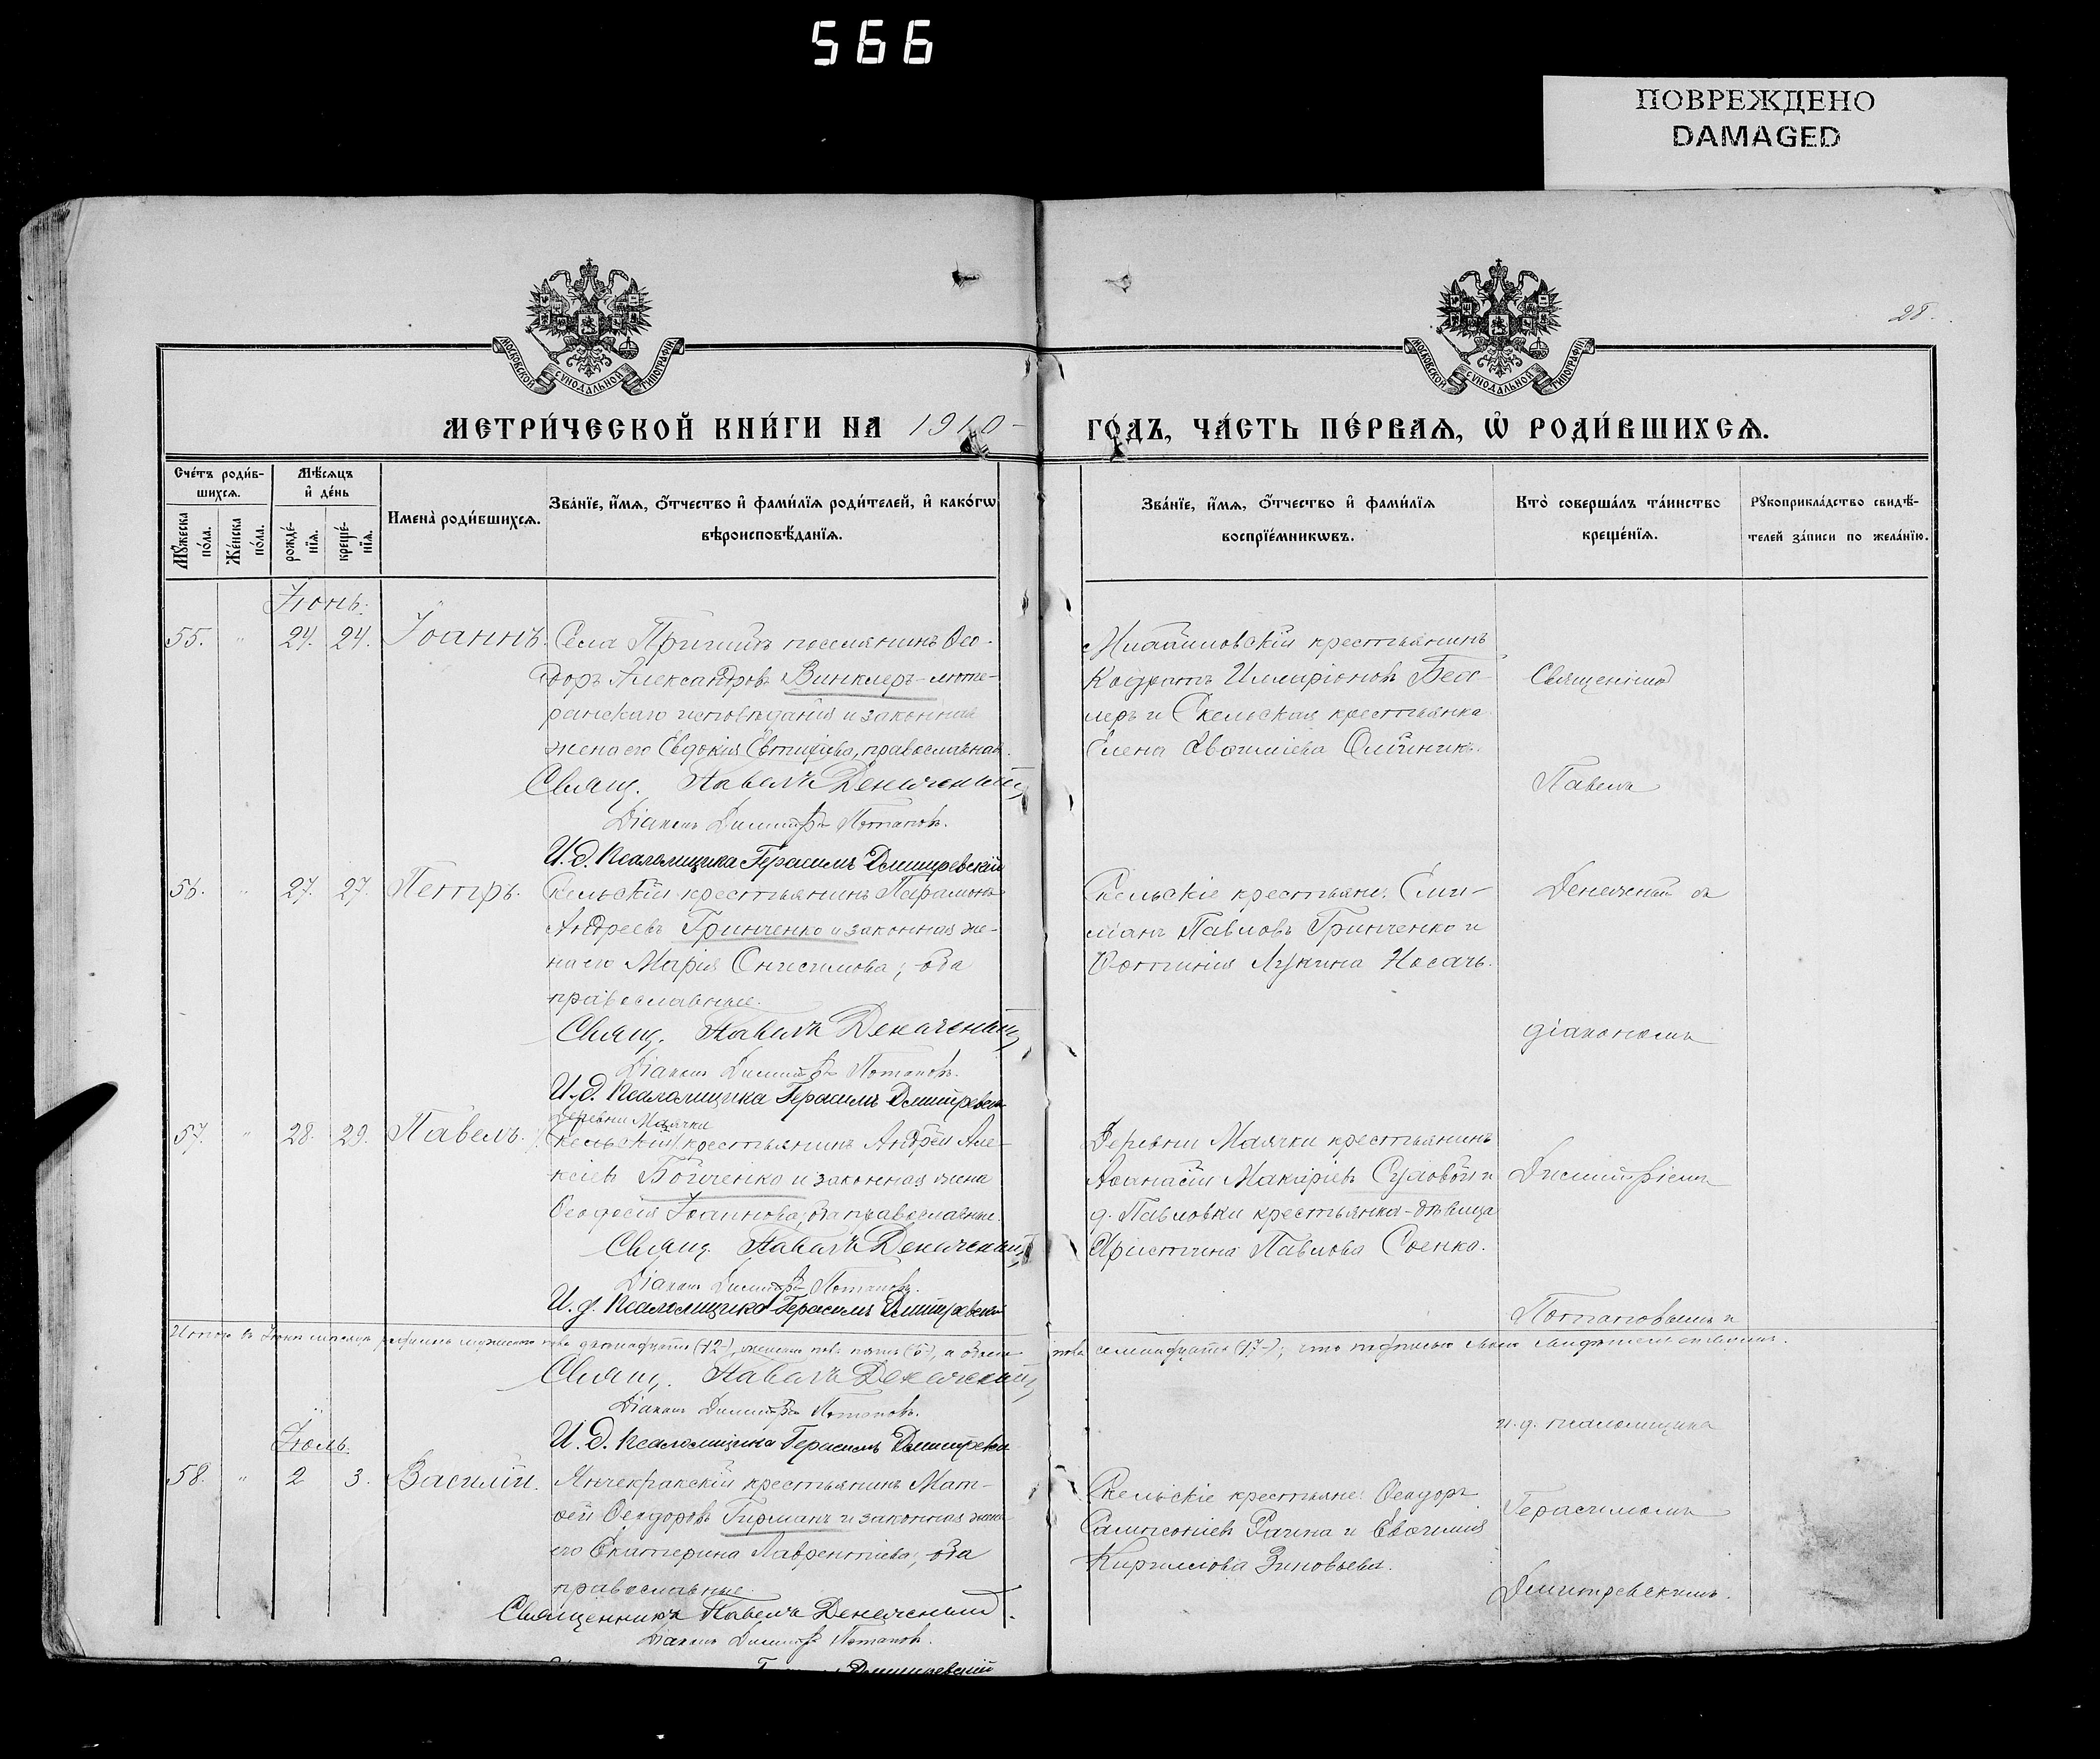 566
ПОВРЕЖДЕНО
DAMAGED
28.
МОСКОВСКОЙ СѴНОДАЛЬНОЙ ТИПОГРАФІИ
МОСКОВСКОЙ СѴНОДАЛЬНОЙ ТИПОГРАФІИ
МЕТРИ́ЧЕСКОЙ КНИ́ГИ НА 1910
ГО́ДЪ, ЧА́СТЬ ПЕ́РВАѦ, Ѡ҆ РОДИ́ВШИХСѦ.
Сче́тъ роди́в-
шихсѧ.
Мꙋ́жеска по́ла.
Же́нска по́ла.
Мѣ́сѧцъ
и҆ де́нь
рожде́-
нїѧ.
креще́-
нїѧ.
Имена̀ роди́вшихсѧ.
Зва́нїе, и҆́мѧ, ѻ҆́тчество и҆ фами́лїѧ роди́телей, и҆ како́гѡ
вѣроисповѣ́данїѧ.
Зва́нїе, и҆́мѧ, ѻ҆́тчество и҆ фами́лїѧ
воспрїе́мникѡвъ.
Кто̀ соверша́лъ та́инство
креще́нїѧ.
Рꙋкоприкла́дство свидѣ́-
телей за́писи по жела́нїю.
Іюнь.
55. " 24. 24. Іоаннъ. Села Пришибъ поселянинъ Ѳео-
доръ Александровъ Винклеръ-люте-
ранскаго исповѣданія и законная
жена его Евдокія Евтифіева, православная.
Свящ. Павелъ
Діаконъ Димитрій Потаповъ.
И. д. Псаломщика Герасимъ Дмитревскій
крестьянинъ
Кодратъ Илларіоновъ
леръ и Скельская крестьянка
Елена Олійникъ.
Священникъ
Павелъ
56. " 27. 27. Петръ. Скельскій крестьянинъ Парамонъ
Андреевъ Гринченко и законная же-
на его Марія Онисимова; оба
православные.
Свящ. Павелъ
Діаконъ Димитрій Потаповъ.
И. д. Псаломщика Герасимъ Дмитревскій
Скельскіе крестьяне: Еми-
ліанъ Павловъ Гринченко и
Фотинія Лукина Носачъ.
съ
діакономъ
деревни Маячки
57. " 28. 29. Павелъ. Скельскій крестьянинъ Андрей Але-
ксіевъ Бойченко и законная жена
Ѳеодосія Іоаннова; оба православные.
Свящ. Павелъ
Діаконъ Димитрій Потаповъ.
И. д. Псаломщика Герасимъ Дмитревскій
Деревни Маячки крестьянинъ
Аѳанасій Макаріевъ Суловой и
д. Павловки крестьянка-дѣвица
Христина Павлова Соенко.
Димитріемъ
Потаповымъ и
Итого въ Іюнѣ мѣсяцѣ родилось мужеска пола двѣнадцать (12), женска пола пять (5), а обоего
пола семнадцать (17);
Свящ. Павелъ
Діаконъ Димитрій Потаповъ.
И. д. Псаломщика Герасимъ Дмитревскій
и. д. псаломщика
Іюль.
58. " 2 3. Василій. Янчекракскій крестьянинъ Мат-
ѳей Ѳеодоровъ Гирманъ и законная жена
его Екатерина Лаврентіева; оба
православные.
Священникъ Павелъ
Діаконъ Димитрій Потаповъ.
Скельскіе крестьяне: Ѳеодоръ
Сампсоніевъ Рачна и Евѳимія
Кириллова Зиновьева.
Герасимомъ
Дмитревскимъ.